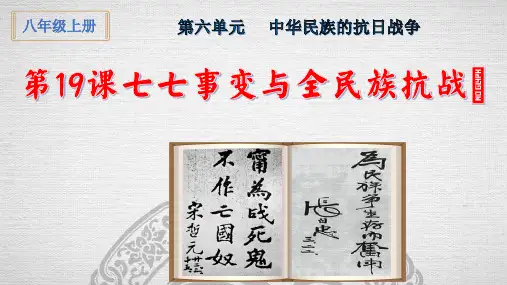 八年级上册
第六单元 中华民族的抗日战争
第19课七七事变与全民族抗战
甯為战死鬼
不作亡國奴
宋哲元
為民族爭生存而奮鬥